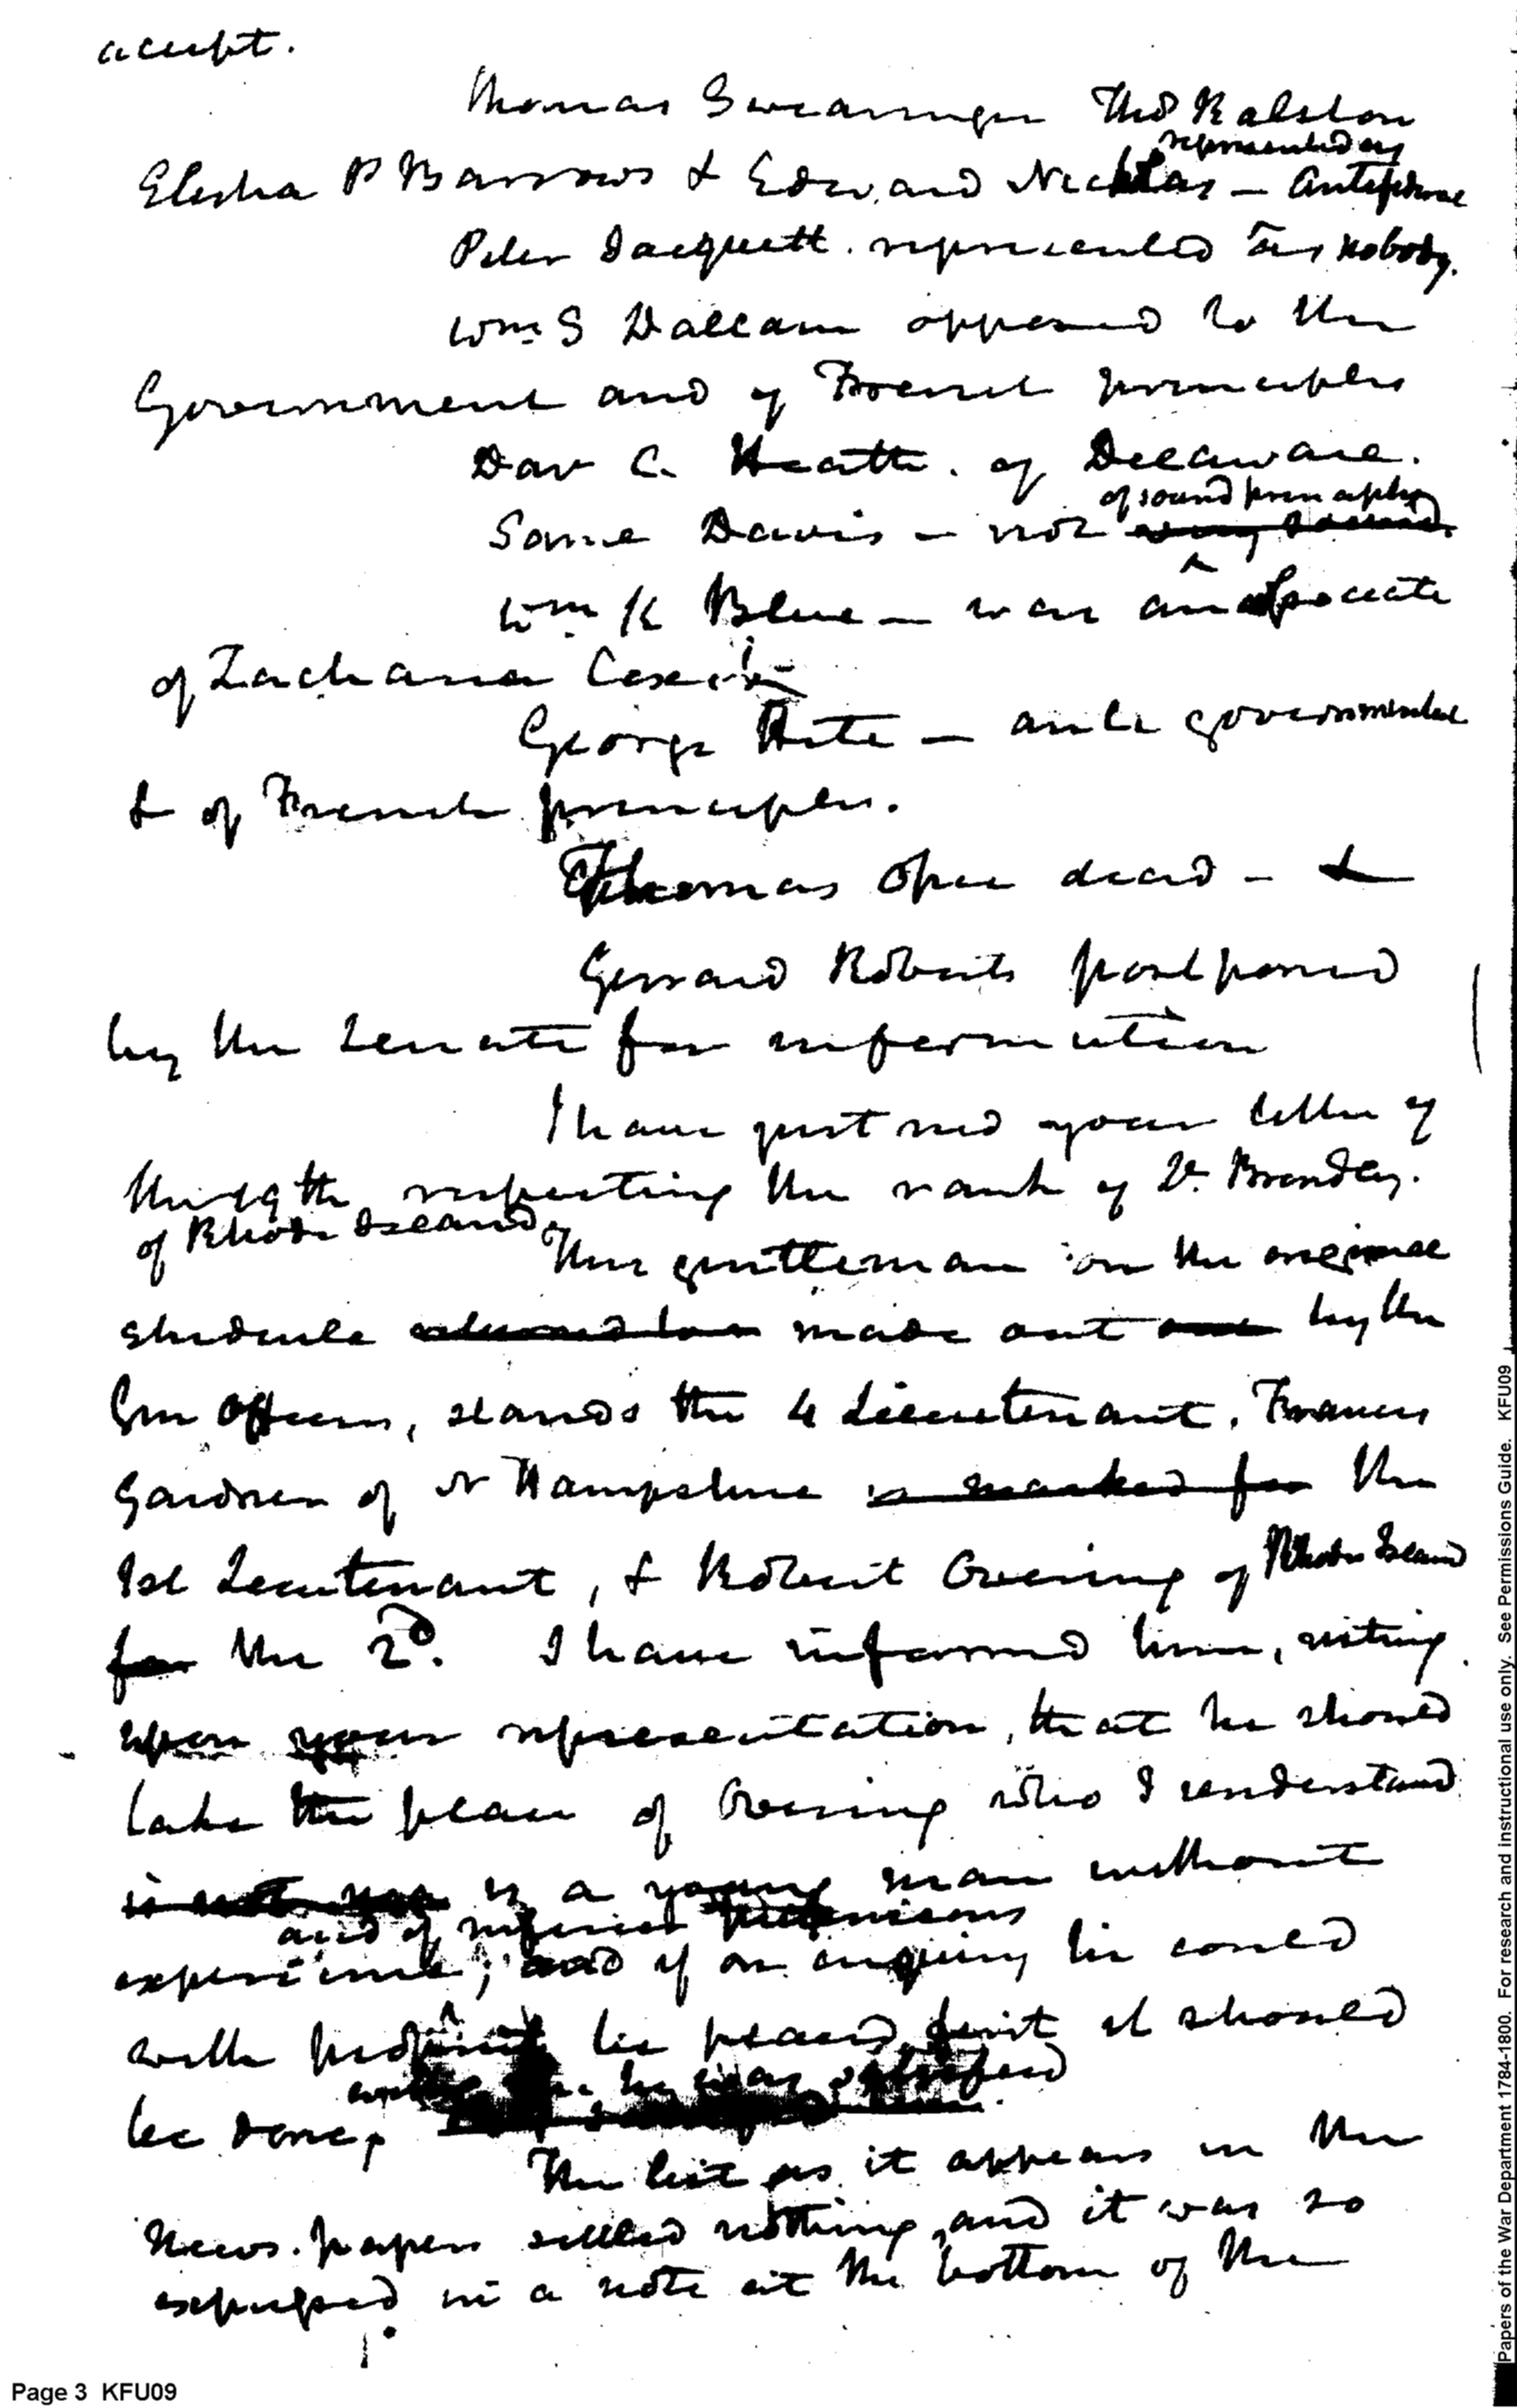 accept.
Thomas Swearingen Thos Ralston
represented as
Elisha P Barrows & Edward Nicholas — Antifederal
Peter Jacquett. represented as nobody.
Wm. S Dallam opposed to the
Government and of French principles
Dav C. Heath. of Delaware.
of sound principles
Same Davis — not very sound
Wm K Blue — was an associate
of Zacharia Coxe
George Hite — anti governmental
& of French principles.
Thomas Opie dead — &
Gerrard Roberts postponed
by the Senate for information
I have just recd your letter of
the 19th respecting the rank of Lt. Brondley.
of Rhode Island
This gentleman on the original
shedule returned made out by the
Gen Officers, stands the 4 Lieutenant. Francis
Gardner of N Hampshire is marked for the
1st Lieutenant, & Robert Overing of Rhode Island
for the 2d. I have informed him, resting
upon your representation, that he should
take the place of Overing who I understand
is not is a young man without
and of inferior pretensions
experience; and if on enquiry he could
with propriety be placed first it should
he was satisfied
be done,
The list as it appears in the
News-papers settled nothing, and it was so
expressed in a note at the bottom of the
Page 3 KFU09
Papers of the War Department 1784-1800. For research and instructional use only. See Permissions Guide. KFU09